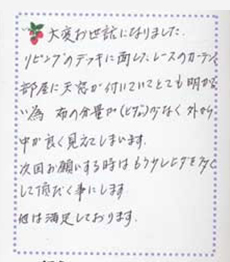 大変お世話になりました。
リビングのデッキに面したレースのカーテン
部屋に天窓が付いていてとても明かる
い為 布の分量が(ヒダが)少なく外から
中が良く見えてしまいます。
次回お願いする時はもう少しヒダを多く
して頂だく事にします。
他は満足しております。